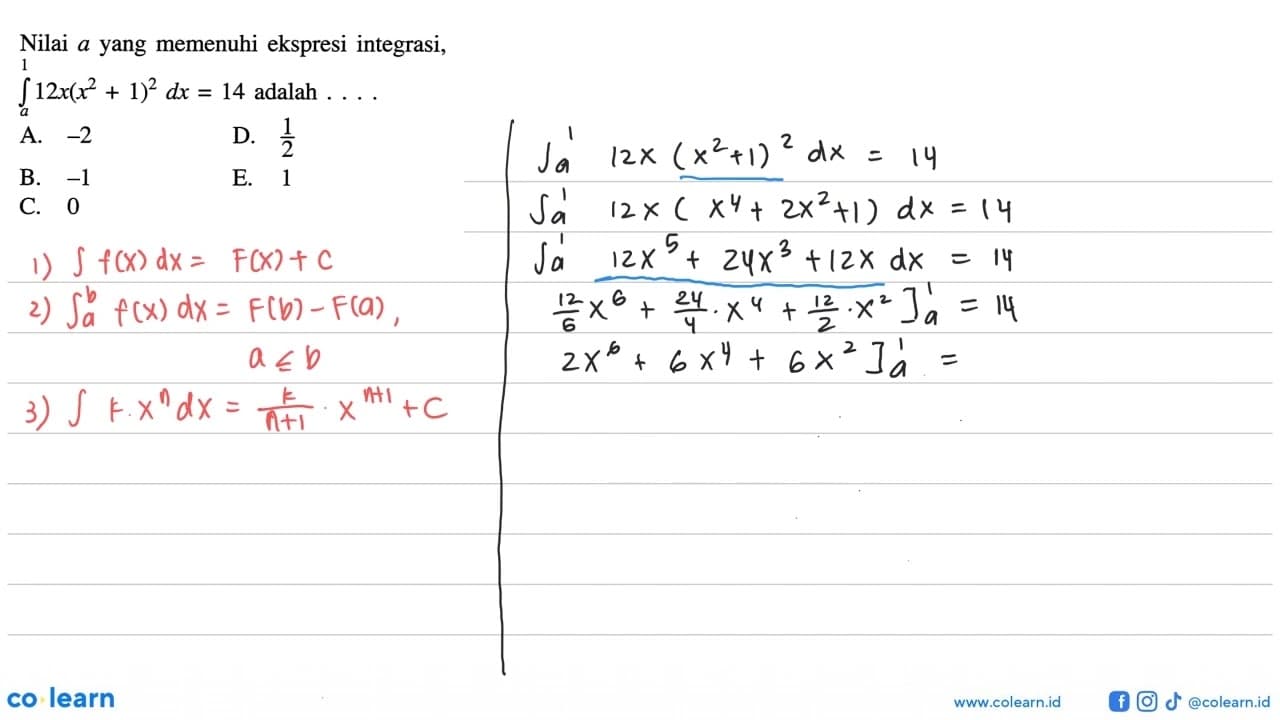 Nilai a yang memenuhi ekspresi integrasi,
∫ₐ¹ 12x(x² + 1)² dx = 14 adalah . . . .
A. –2
B. –1
C. 0
D. 1/2
E. 1
1) ∫ f(x) dx = F(x) + C
2) ∫ₐᵇ f(x) dx = F(b) – F(a),
a ≤ b
3) ∫ k. xⁿ dx = k/(n+1) · xⁿ⁺¹ + C
∫ₐ¹ 12x (x²+1)² dx = 14
∫ₐ¹ 12x ( x⁴ + 2x²+1) dx = 14
∫ₐ¹ 12x⁵ + 24x³ + 12x dx = 14
12/6 x⁶ + 24/4 · x⁴ + 12/2 · x² ]ₐ¹ = 14
2x⁶ + 6x⁴ + 6x² ]ₐ¹ =
co learn
www.colearn.id
@colearn.id